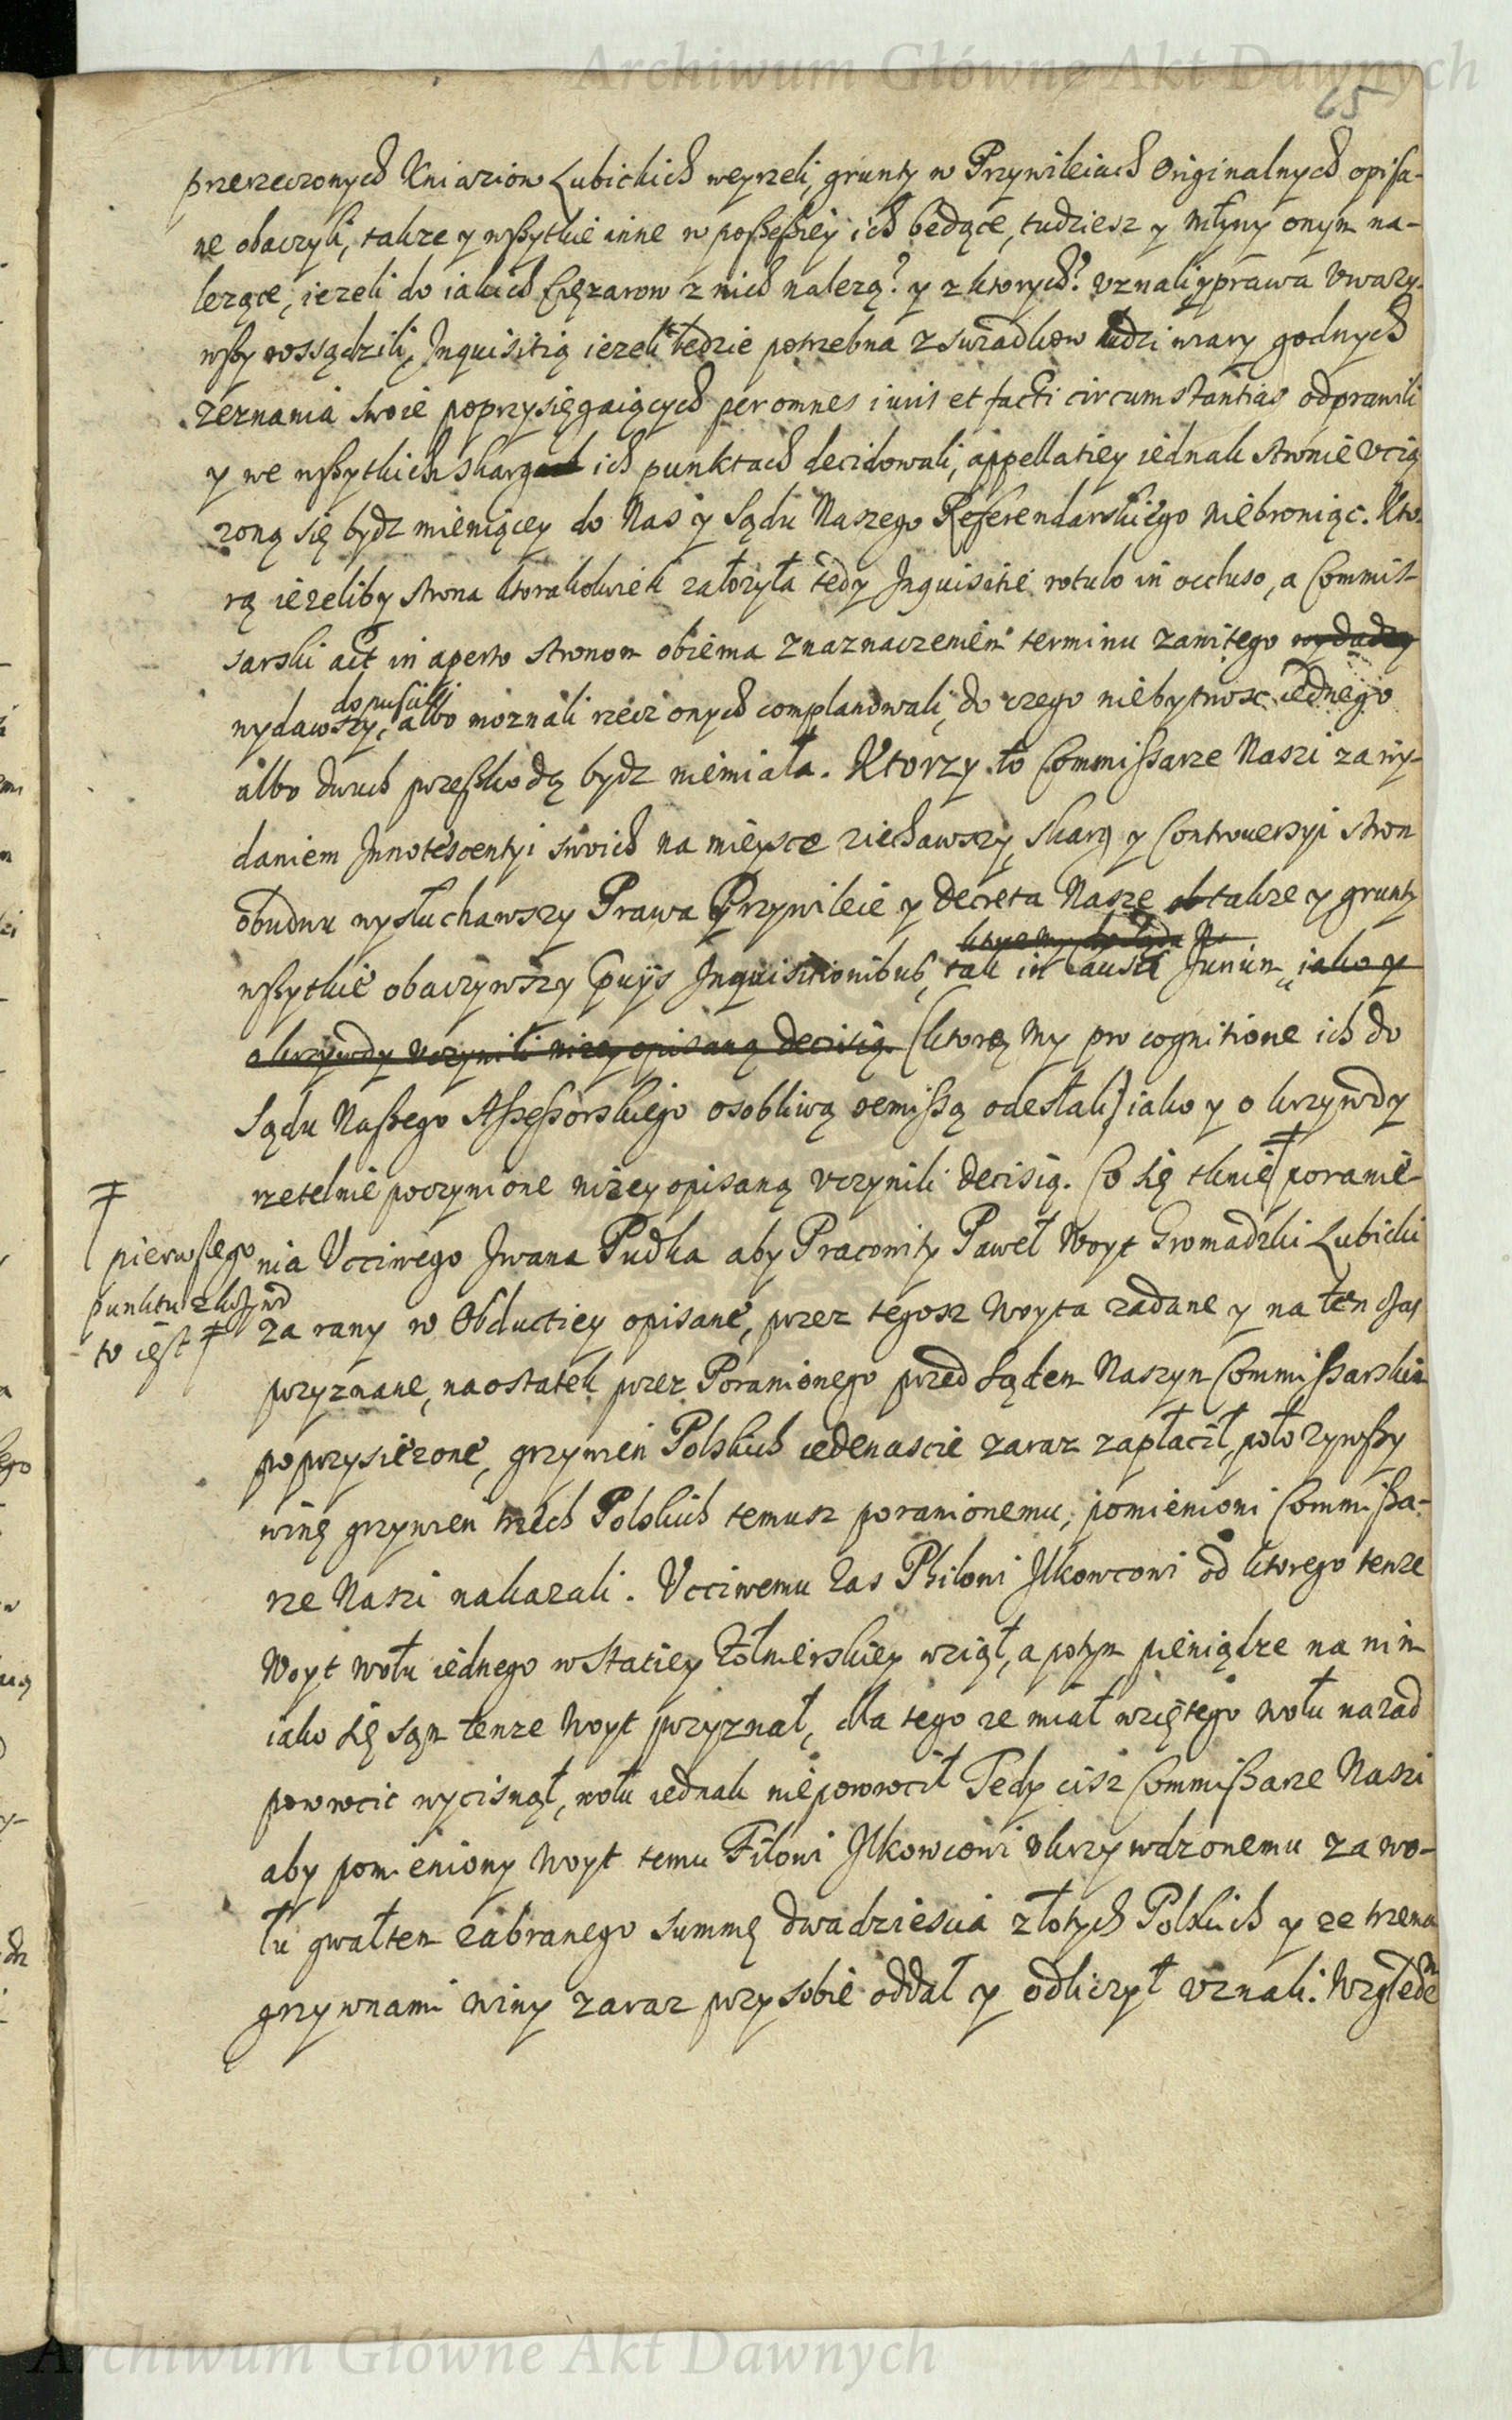 Archiwum Główne Akt Dawnych
65
przerzeczonych Kniaziow Lubickich weyrzeli, grunty w Przywileiach Originalnych opisa-
ne obaczyli, takze y wszytkie inne w possessiey ich będące, tudziesz y młyny onym na-
lezące, iezeli do iakich ciężarow z nich nalezą? y z ktorych? uznali y prawa uwazy-
wszy rossądzili, Inquisitią iezeli będzie potrzebna z swiadkow ludzi wiary godnych
zeznania swoie poprzysięgaiących per omnes iuris et facti circumstantias odprawili
y we wszytkich skarg ich punktach decidowali, appellatiey iednak stronie ucią
zoną się bydz mieniącey do Nas y Sądu Naszego Referendarskiego niebroniąc. Kto-
rą iezeliby strona ktorakolwiek załozyła tedy Inquisitie rotulo in occluso, a Commis-
sarski act in aperto stronom obiema z naznaczeniem terminu zawitego wydadzą
dopuscili
wydawszy, albo moznali rzecz onych complanowali, do czego niebytnosc iednego
albo dwuch przeszkodą bydz niemiała. Ktorzy to Commissarze Naszi za wy-
daniem Innotescentyi swoich na mieysce ziechawszy, skarg y Controuersyi stron
obudwu wysłuchawszy Prawa Przywileie y Decreta Nasze takze y grunty
wszytkie obaczywszy Cuiis Inquisitionibus, tak in causa Iunium, iako y
o krzywdy uczynili nizey opisaną decisią. (ktorą My pro cognitione ich do
Sądu Naszego Assessorskiego osobliwą remissą odesłali) iako y o krzywdy
rzetelnie poczynione nizey opisaną uczynili decisią. Co się tknie ‡ poranie-
‡ pierwszego
punktu z krzywd
to iest ‡
nia Ucciwego Iwana Pudka aby Pracowity Paweł Woyt Gromadzki Lubicki
za rany w Obductiey opisane, przez tegosz Woyta zadane y na ten czas
przyznane, naostatek przez Poranionego przed Sądem Naszym Commissarskim
poprzysiezone, grzywien Polskich iedenascie zaraz zapłacił, połozywszy
winę grzywien trzech Polskich temusz poranionemu, pomienioni Commissa-
rze Naszi nakazali. Ucciwemu zas Philowi Ilkowcowi od ktorego tenze
Woyt wołu iednego w statiey Zołnierskiey wziął, a potym pieniądze na nim
iako się sąm tenze Woyt przyznał, dla tego ze miał wziętego wołu nazad
powrocic wycisnął, wołu iednak niepowrocił Tedy cisz Commissarze Naszi
aby pomieniony Woyt temu Filowi Ilkowcowi ukrzywdzonemu za wo-
łu gwałtem zabranego summę dwadziescia złotych Polskich y ze trzema
grzywnami winy zaraz przy sobie oddał y odliczył uznali. Względem
Archiwum Główne Akt Dawnych